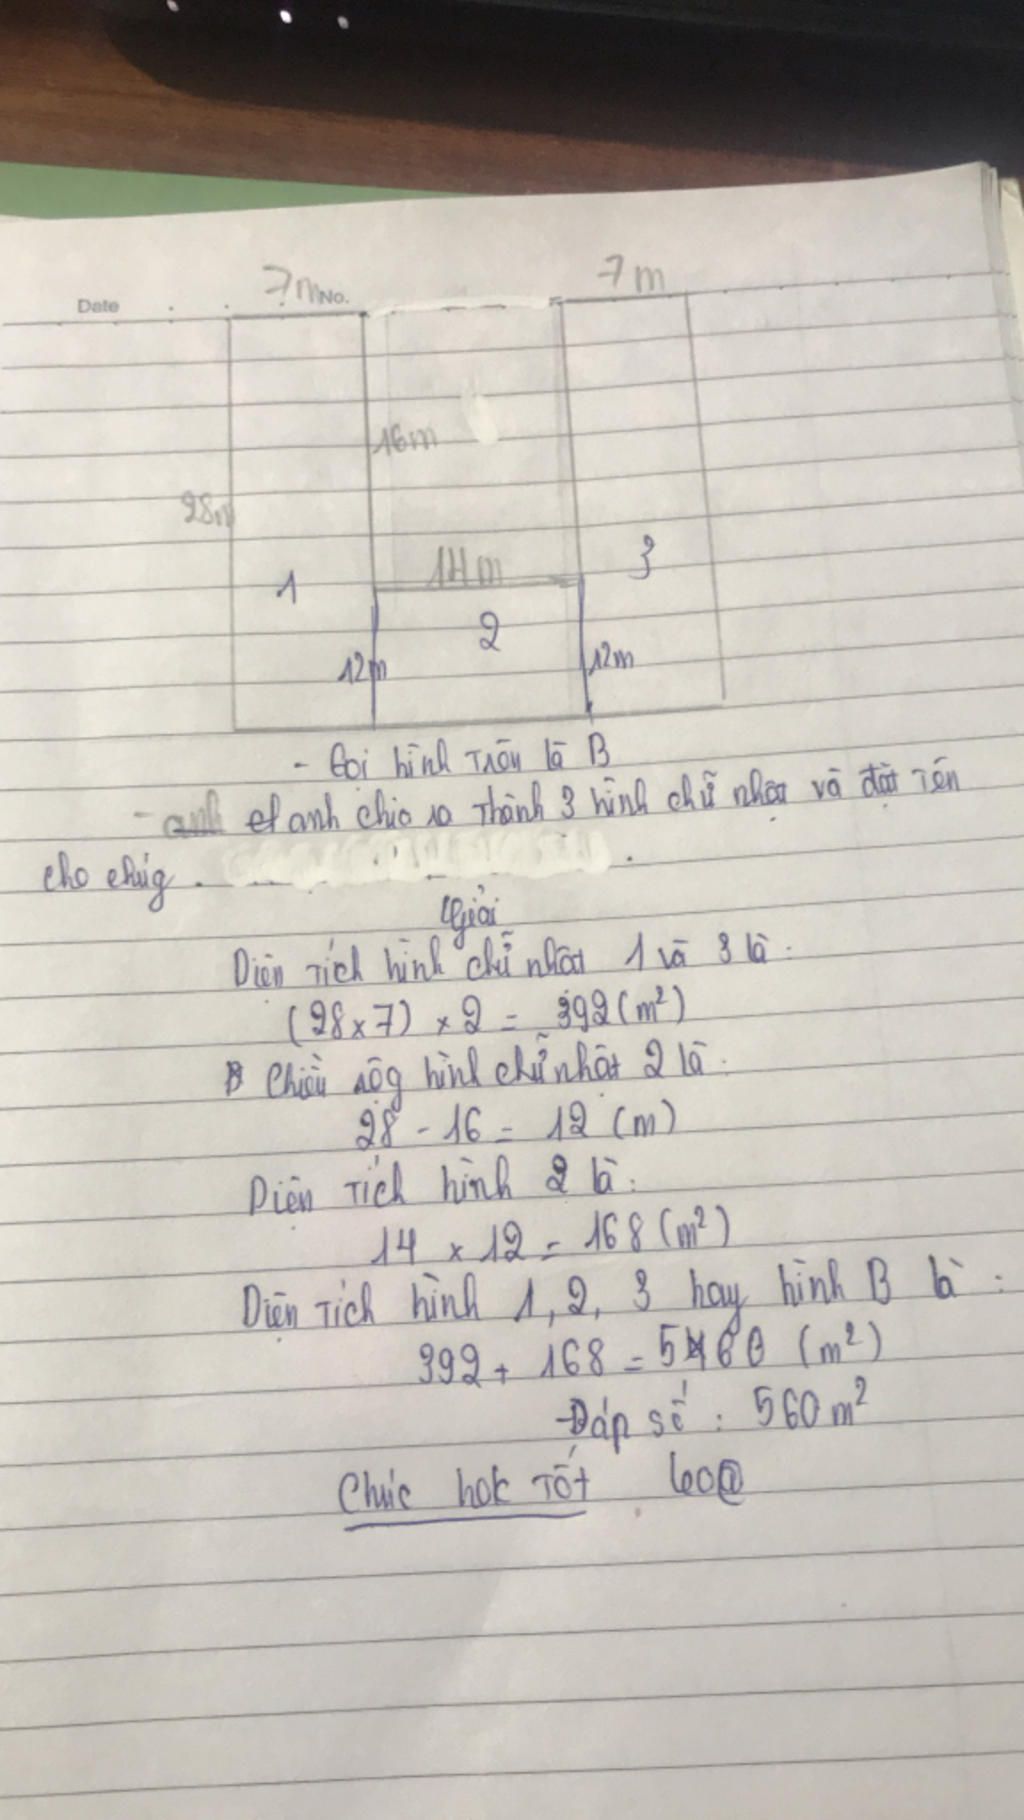 7m
7m
Date
No.
16m
28m
14m
1
2
3
12m
12m
- Gọi hình trên là B
- anh et anh chia ra thành 3 hình chữ nhật và đặt tên
cho chúg.
Giải
Diện tích hình chữ nhật 1 và 3 là:
(28 x 7) x 2 = 392 (m²)
Chiều rôg hình chữ nhật 2 là:
28 - 16 = 12 (m)
Diện tích hình 2 là:
14 x 12 = 168 (m²)
Diện tích hình 1, 2, 3 hay hình B là:
392 + 168 = 560 (m²)
Đáp số: 560 m²
Chúc hok tốt